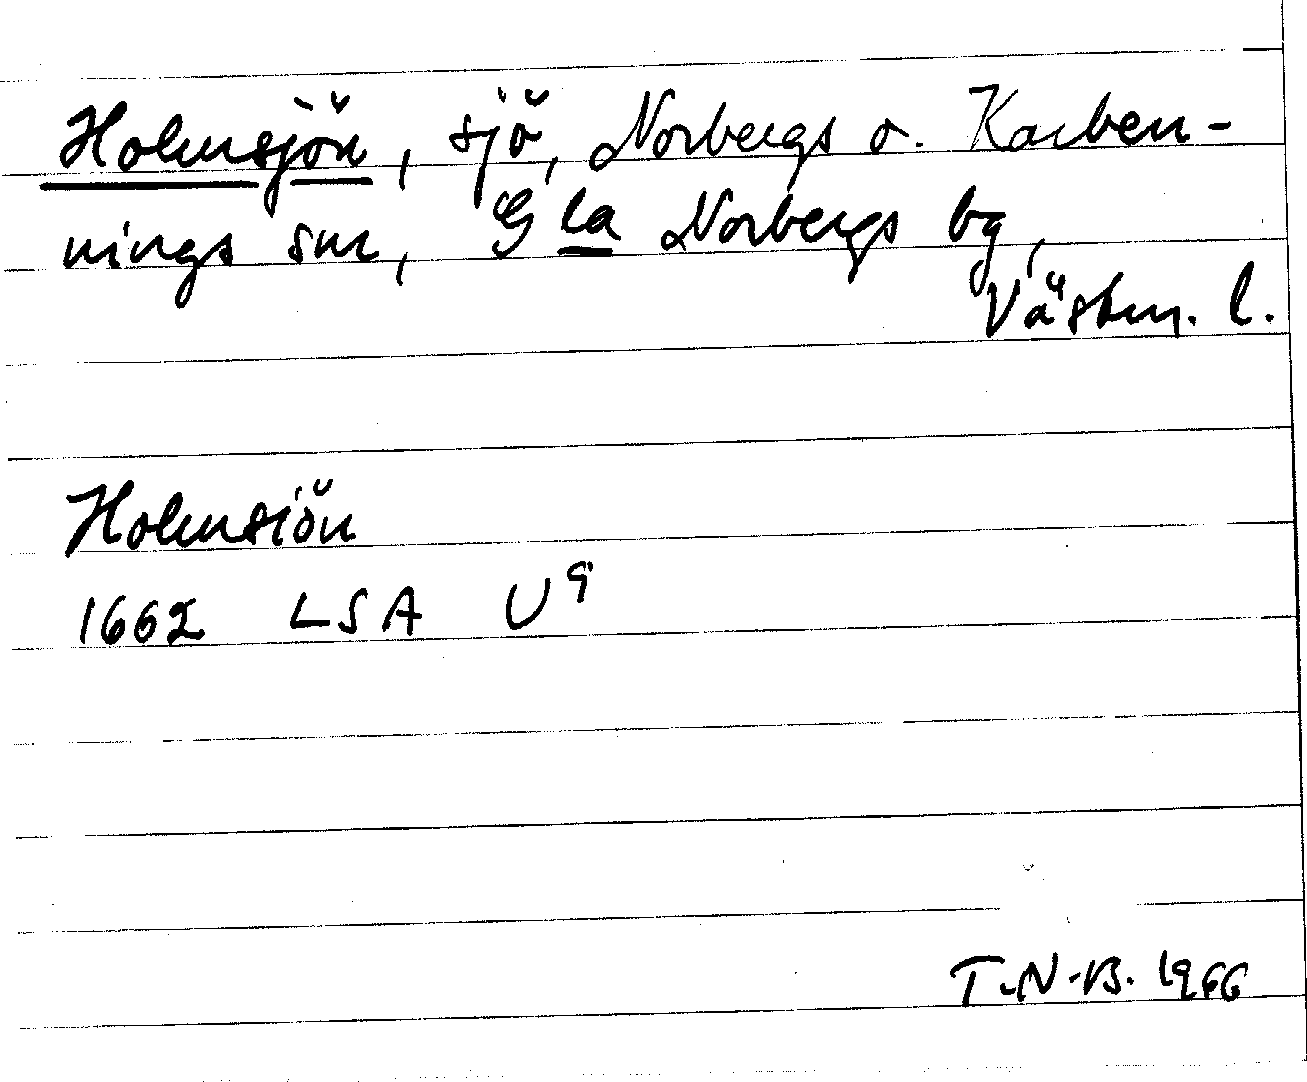 Holmsjön, sjö, Norbergs o. Karben-
nings snr, Gla Norbergs bg,
Västm. l.
Holmsiön
1662 LSA U9
T.N-B. 1966